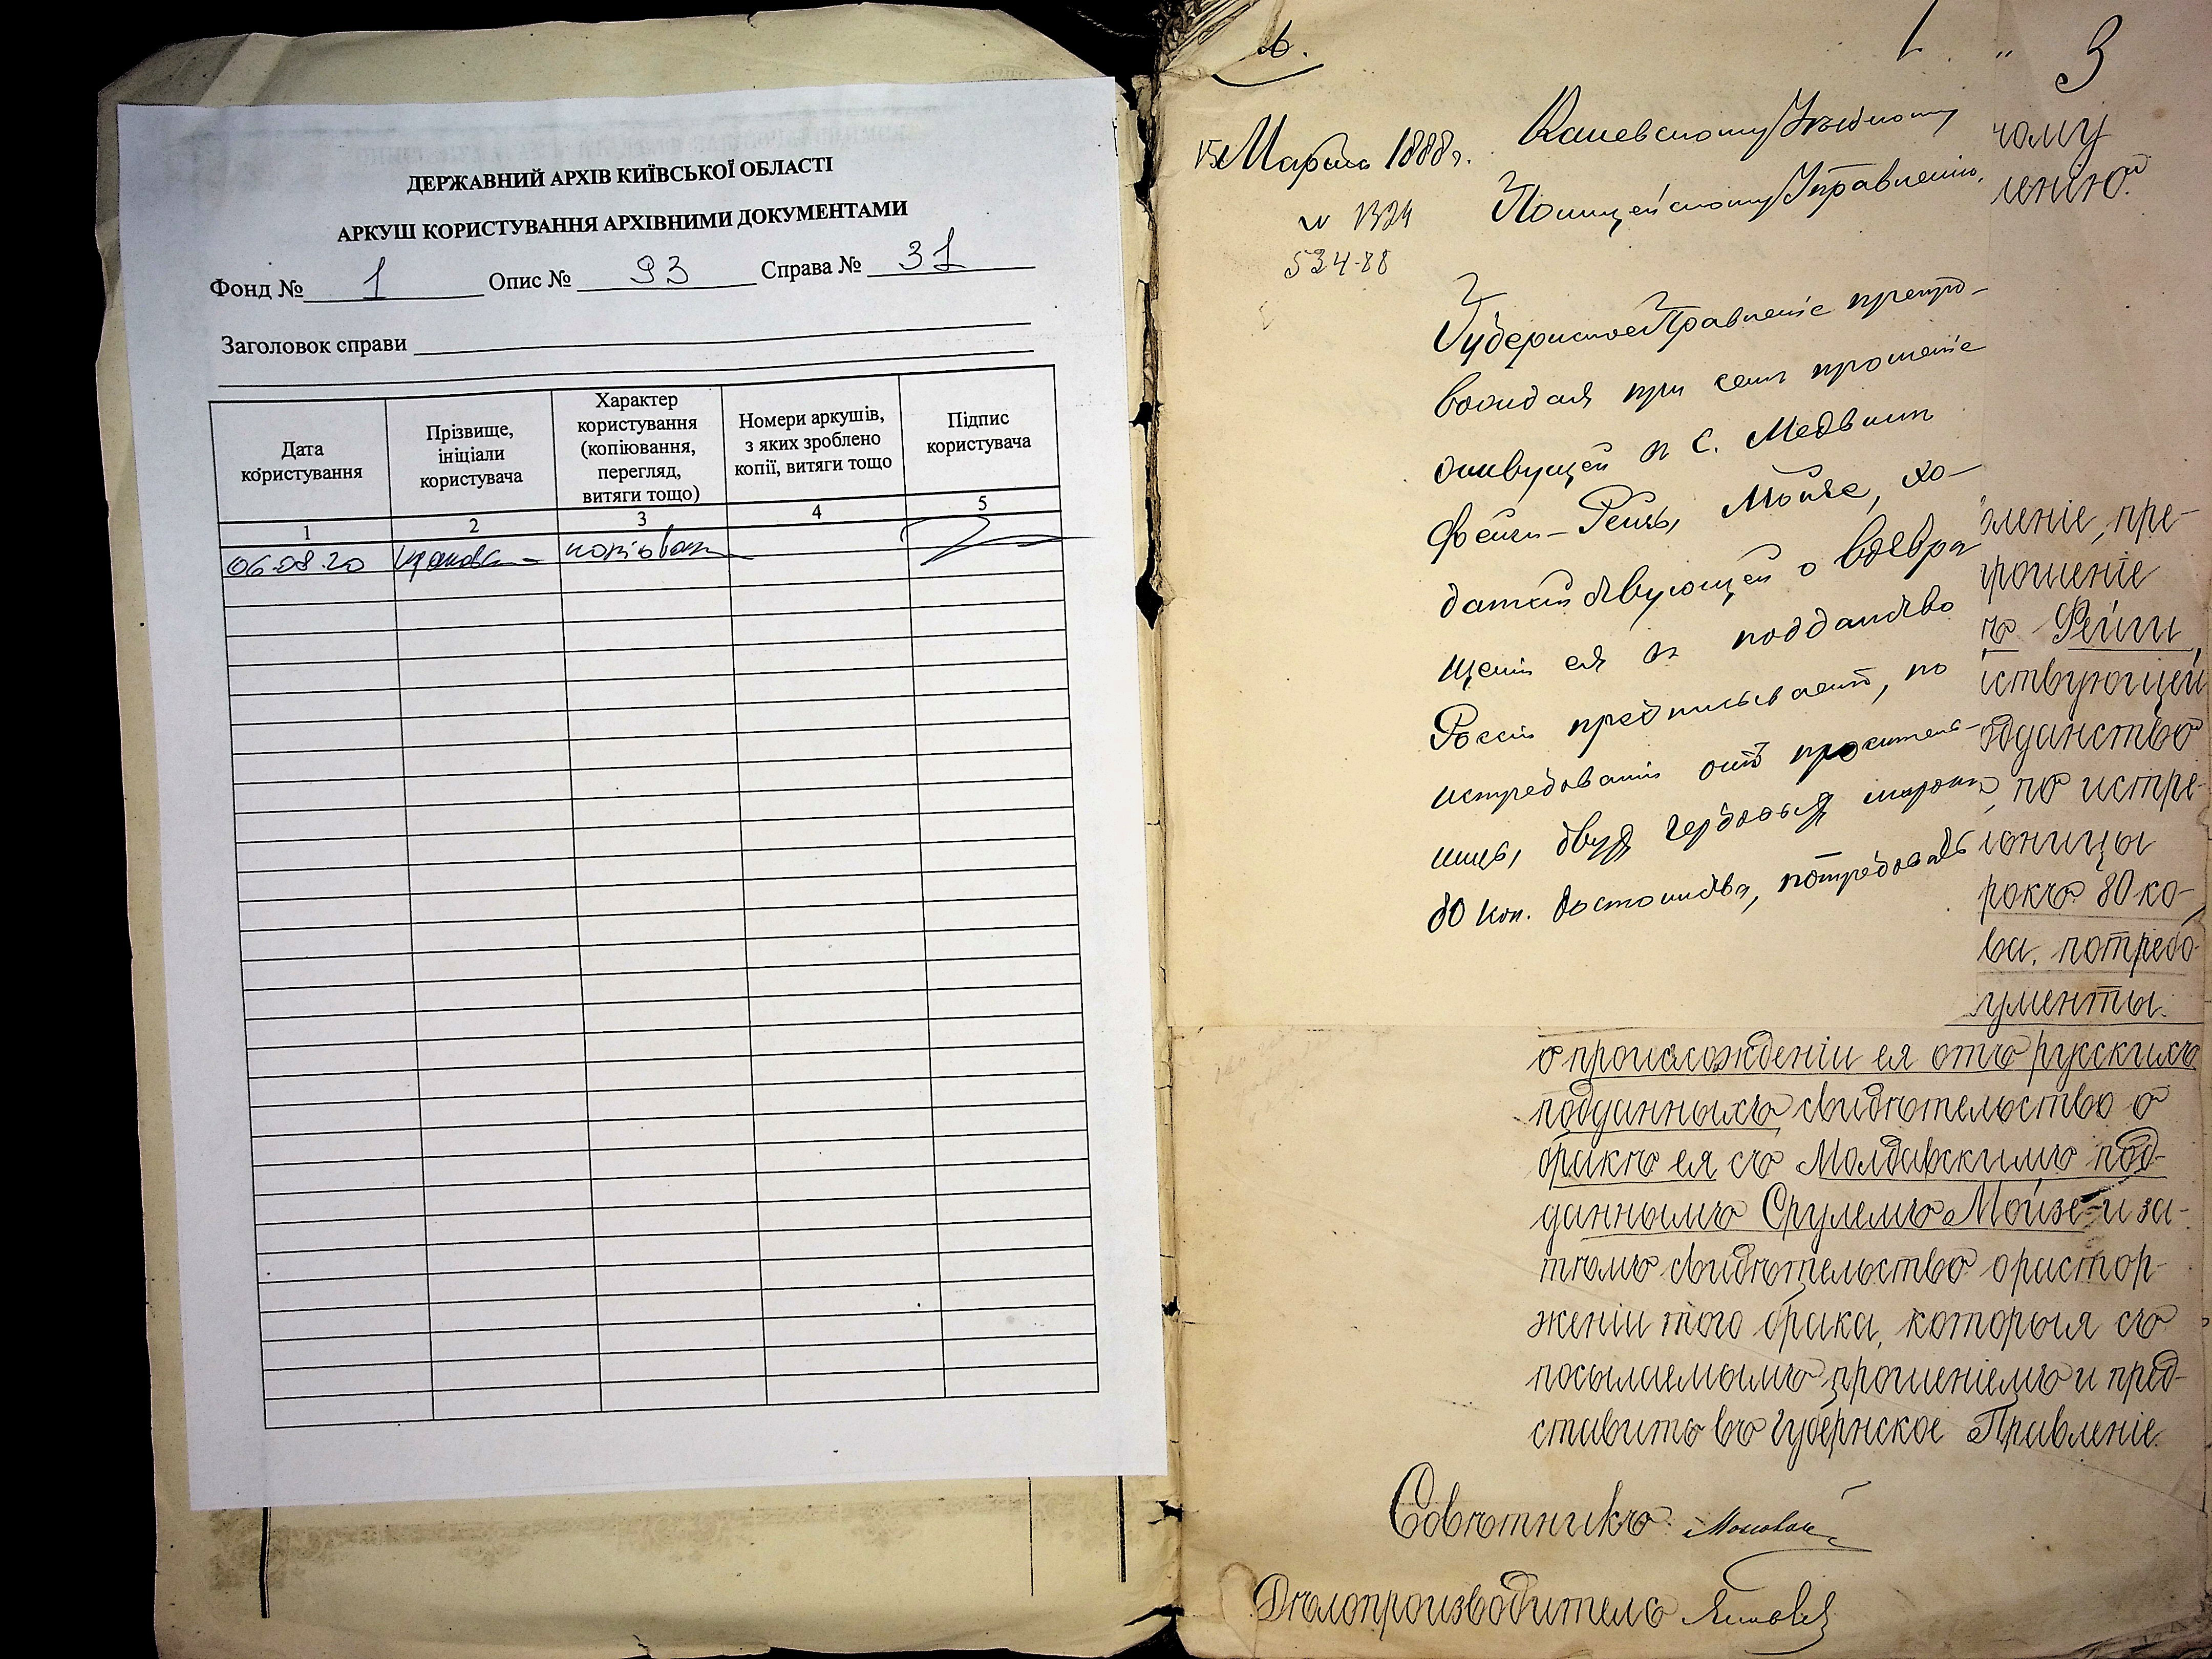 ДЕРЖАВНИЙ АРХІВ КИЇВСЬКОЇ ОБЛАСТІ
АРКУШ КОРИСТУВАННЯ АРХІВНИМИ ДОКУМЕНТАМИ
Фонд № 1 Опис № 93 Справа № 31
Заголовок справи
Дата користування
Прізвище, ініціали користувача
Характер користування (копіювання, перегляд, витяги тощо)
Номери аркушів, з яких зроблено копії, витяги тощо
Підпис користувача
1 2 3 4 5
06.08.20
1 " 3
15 Марта 1888 г.
№ 1324
534-88
Каневскому Уѣздному
Полицейскому Управленію.
Губернское Правленіе препро-
вождая при семъ прошеніе
живущей въ С. Медвинъ
Фейги-Рейзы Мойзе, хо-
датайствующей о возвра
щеніи ея въ подданство
Россіи предписываетъ, по
истребованіи отъ проситель-
ницы, двухъ гербовыхъ марокъ
80 коп. достоинства, потребовать
чому
ленію.
вленіе, пре-
прошеніе
ъ Рейзи,
йствующей
одданство
, по истре-
ьницы
рокъ 80 ко-
ва, потребо
ументы.
о происхожденіи ея отъ русскихъ
подданныхъ, свидѣтельство о
бракѣ ея съ Молдавскимъ под-
даннымъ Срулемъ Мойзе и за-
тѣмъ свидѣтельство о растор-
женіи того брака, которыя съ
посылаемымъ прошеніемъ и пред-
ставить въ Губернское Правленіе.
Совѣтникъ
Дѣлопроизводитель